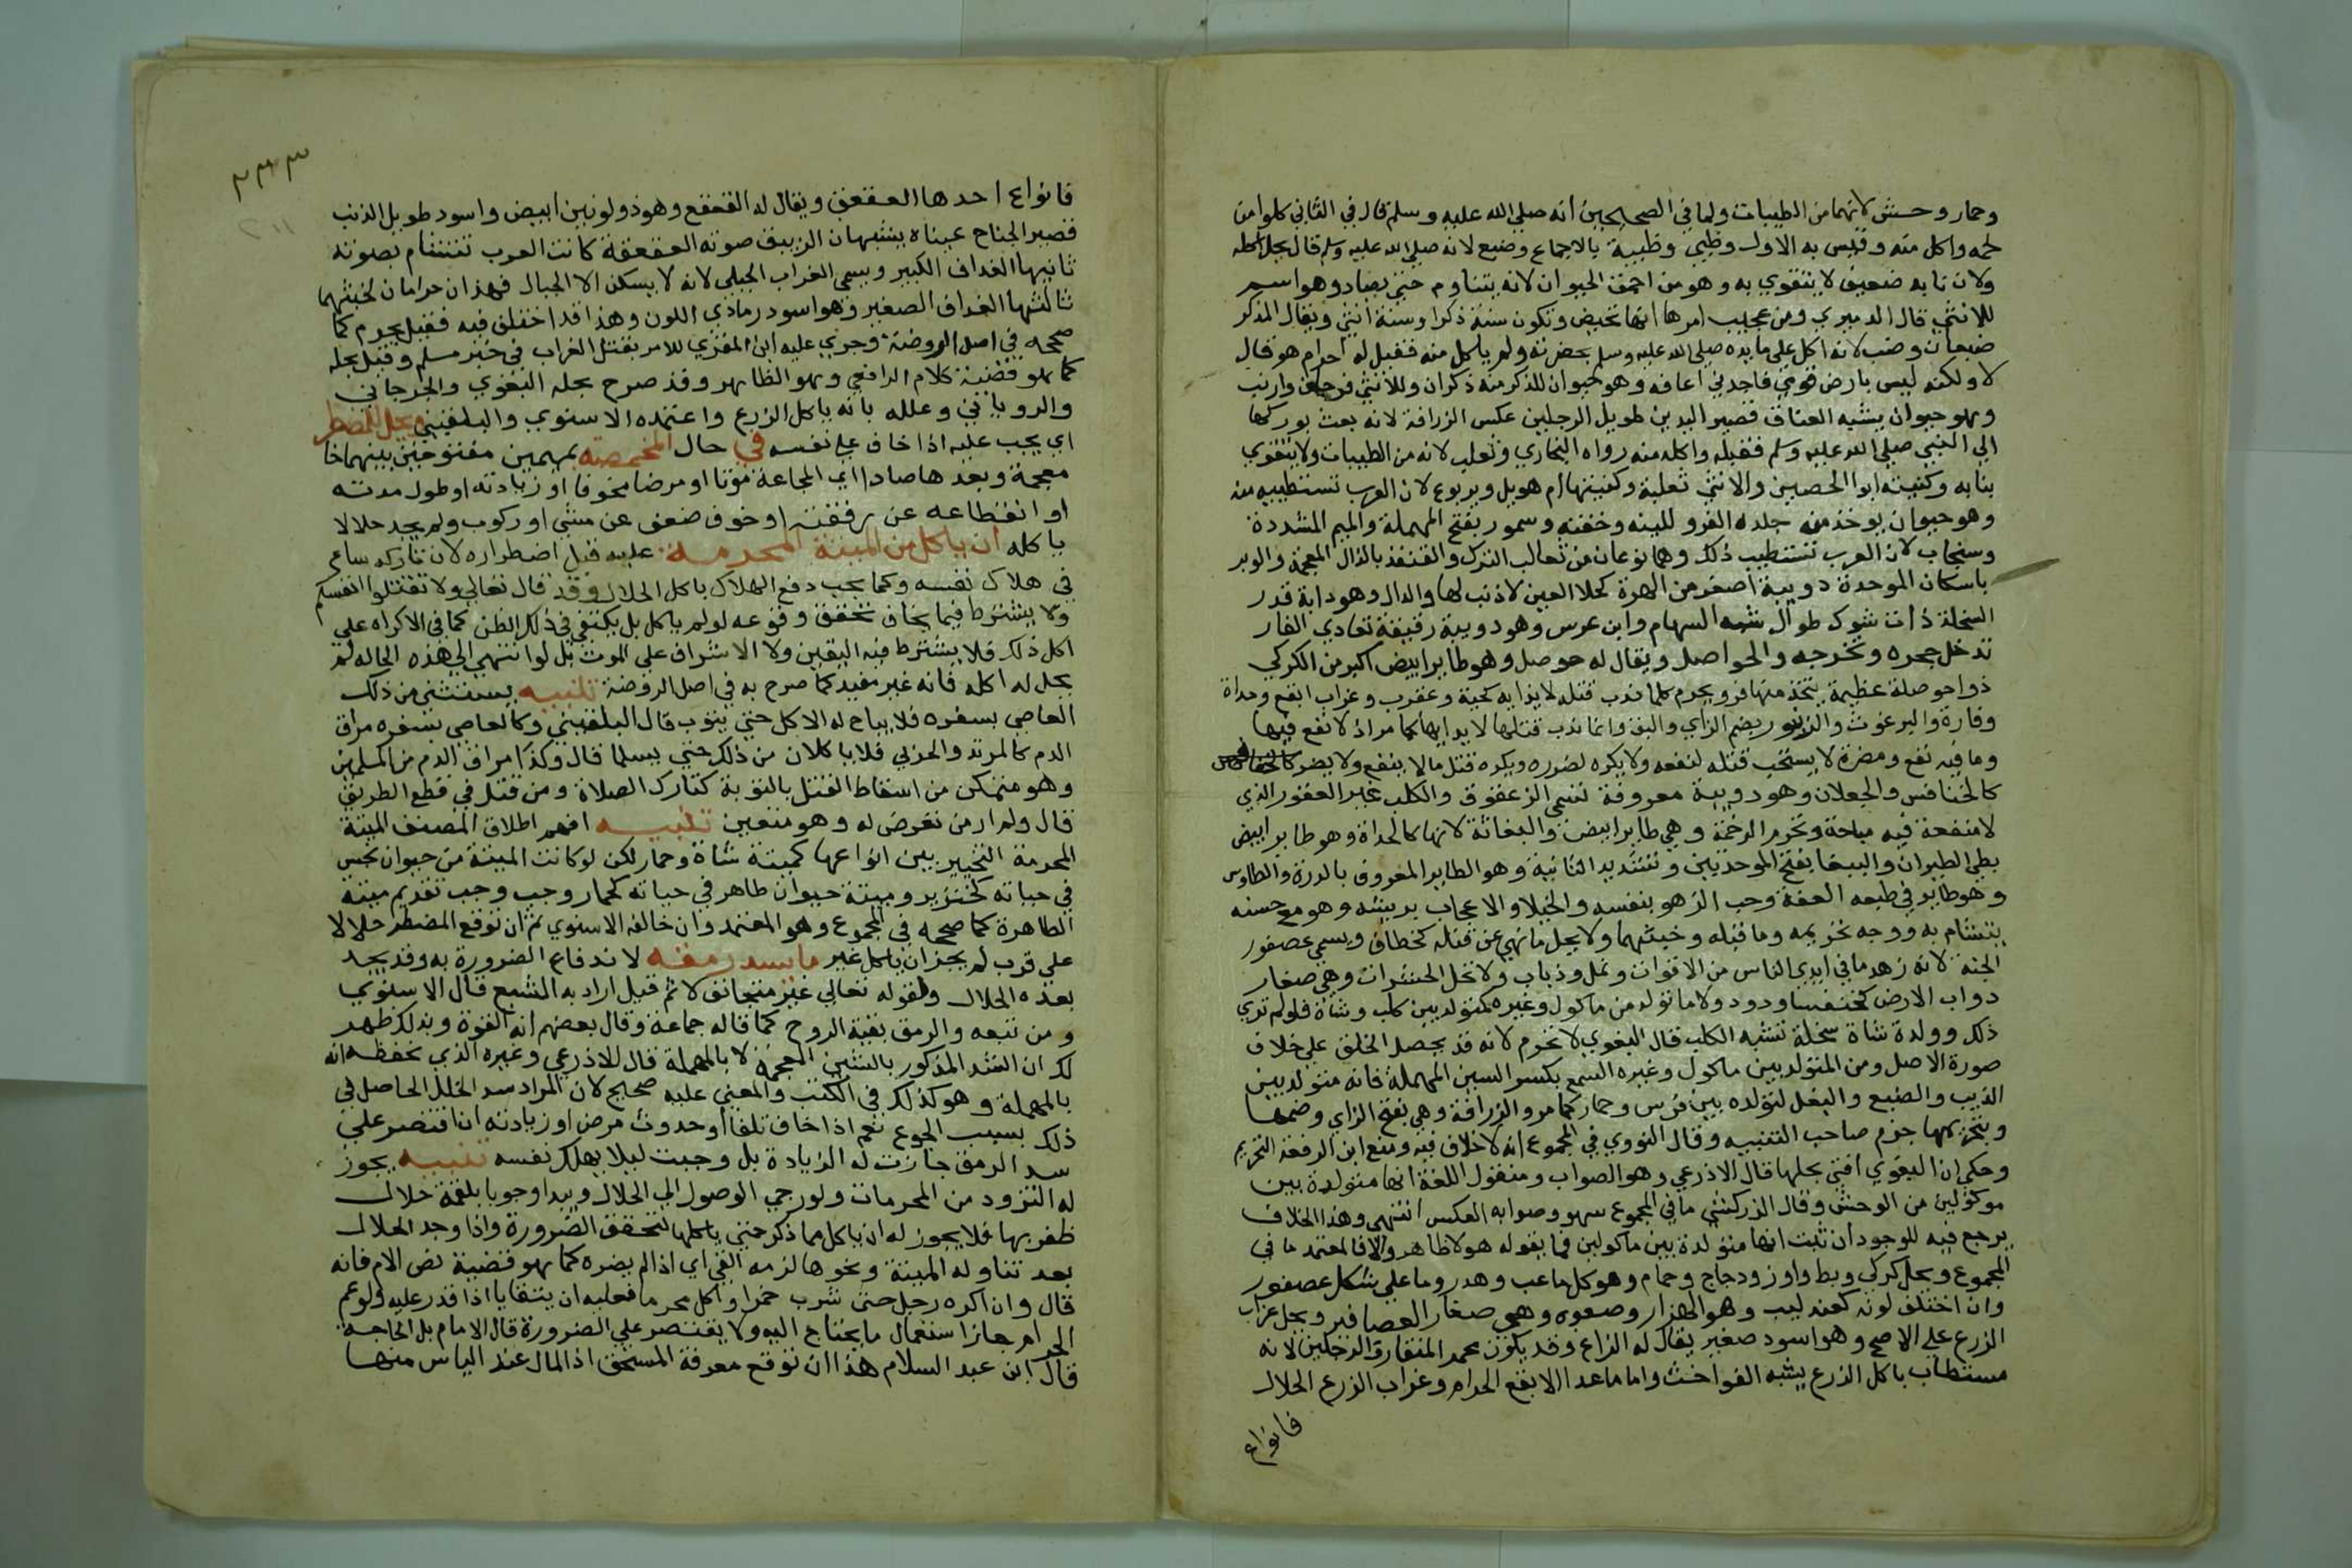 وحمار وحش لانهما من الطيبات ولما في الصحيحين انه صلي الله عليه وسلم قال في الثاني كلوا من
لحمه واكل منه وقيس به الاول وظبي وظبية بالاجماع وضبع لانه صلي الله عليه وسلم قال يحل اكله
ولان نابه ضعيف لا يتقوي به وهو من احمق الحيوان لانه يتناوم حتي يصاد وهو اسم
للانثي قال الدميري ومن عجيب امرها انها تحيض وتكون سنة ذكرا وسنة انثي ويقال للذكر
ضبعان وضب لانه اكل علي مايده صلي الله عليه وسلم بحضرته ولم ياكل منه فقيل له احرام هو قال
لا ولكنه ليس بارض قومي فاجدني اعافه وهو حيوان للذكر منه ذكران وللانثي فرجان وارنب
وهو حيوان يشبه العناق قصير اليدين طويل الرجلين عكس الزرافة لانه بعث بوركها
الي النبي صلي الله عليه وسلم فقبله واكله منه رواه البخاري وثعلب لانه من الطيبات ولا يتقوي
بنابه وكنيته ابوا الحصين والانثي ثعلبة وكنيتها ام هويل ويربوع لان العرب تستطيبه منه
وهو حيوان يوخذ منه جلده الفرو للينه وخفته وسمور بفتح المهملة والميم المشددة
وسنجاب لان العرب تستطيب ذلك وهما نوعان من ثعالب الترك والقنفذ بالذال المعجمة والوبر
باسكان الموحدة دويبة اصغر من الهرة كحلا العين لا ذنب لها والدلدل وهو دابة قدر
السخلة ذات شوك طوال شبه السهام وابن عرس وهو دويبة رقيقة تعادي الفار
تدخل جحره وتخرجه والحواصل ويقال له حوصل وهو طاير ابيض اكبر من الكركي
ذو احوصلة عظيمة يتخذ منها فرو ويحرم كلما ندب قتله لايذايه كحية وعقرب وغراب ابقع وحداة
وفارة والبرغوث والزنبور بضم الزاي والبق وانما ندب قتلها لايذايها كما مر اذ لا نفع فيها
وما فيه نفع ومضرة لا يستحب قتله لنفعه ولا يكره لضرره ويكره قتل مالا ينفع ولا يضر
كالخنافس والجعلان وهو دويبة معروفة تسمي الزعقوق والكلب غير العقور الذي
لا منفعة فيه مباحة وتحرم الرخمة وهي طاير ابيض والبغاثة لانها كالحداة وهو طاير ابيض
بطي الطيران والببغا بفتح الموحدتين وتشديد الثانية وهو الطاير المعروف بالدرة والطاوس
وهو طاير في طبعه العفة وحب الزهو بنفسه والخيلا والاعجاب بريشه وهو مع حسنه
يتشام به ووجه تحريمه وما قبله وخبثهما ولا يحل ما نهي عن قتله كخطاف ويسمي عصفور
الجنة لانه زهد ما في ايدي الناس من الاقوات ونمل وذباب ولا تحل الحشرات وهي صغار
دواب الارض كخنفسا ودود ولا ما تولد من ماكول وغيره كمتولد بين كلب وشاة فلو لم تري
ذلك وولدة شاة سخلة تشبه الكلب قال البغوي لا تحرم لانه قد يحصل الخلق علي خلاف
صورة الاصل ومن المتولد بين ماكول وغيره السمع بكسر السين المهملة فانه متولد بين
الذيب والضبع والبغل لتولده بين فرس وحمار كما مر والزرافة وهي بفتح الزاي وضمها
وبتحريمها جزم صاحب التنبيه وقال النووي في المجموع انه لا خلاف فيه ومنع ابن الرفعة التحريم
وحكي ان البغوي افتي بحلها قال الاذرعي وهو الصواب ومنقول اللغة انها متولدة بين
موكولين من الوحش وقال الزركشي ما في المجموع سهو وصوابه العكس انتهي وهذا الخلاف
يرجع فيه للوجود ان ثبت انها متولدة بين ماكولين فما يقوله هولا ظاهر والا فالمعتمد ما في
المجموع ويحل كركي وبط واوز ودجاج وحمام وهو كل ما عب وهدر وما علي شكل عصفور
وان اختلف لونه كعندليب وهو الهزار وصعوه وهي صغار العصافير ويحل غراب
الزرع علي الاصح وهو اسود صغير يقال له الزاغ وقد يكون محمر المنقار والرجلين لانه
مستطاب ياكل الزرع يشبه الفواخت واما ماعدا الابقع الحرام وغراب الزرع الحلال
فانواع
٢٣٣
٢١١
فانواع احدها العقعق ويقال له القعقع وهو ذو لونين ابيض واسود طويل الذنب
قصير الجناح عيناه يشبهان الزيبق صوته العقعقة كانت العرب تتشام بصوته
ثانيها الغداف الكبير ويسمي الغراب الجبلي لانه لا يسكن الا الجبال فهذان حرامان لخبثهما
ثالثها الغداف الصغير وهو اسود رمادي اللون وهذا قد اختلف فيه فقيل يحرم كما
صححه في اصل الروضة وجري عليه ابن المقري للامر بقتل الغراب في خبر مسلم وقيل بحله
كما هو قضية كلام الرافعي وهو الظاهر وقد صرح بحله البغوي والجرجاني
والروياني وعلله بانه ياكل الزرع واعتمده الاسنوي والبلقيني ويحل للمضطر
اي يجب عليه اذا خاف علي نفسه في حال المخمصة بميمين مفتوحتين بينهما خا
معجمة وبعدها صاد اي المجاعة موتا او مرضا مخوفا او زيادته او طول مدته
او انقطاعه عن رفقته او خوف ضعف عن مشي او ركوب ولم يجد حلالا
ياكله ان ياكل من الميتة المحرمة عليه قبل اضطراره لان تاركه ساع
في هلاك نفسه وكما يجب دفع الهلاك باكل الحلال وقد قال تعالي ولا تقتلوا انفسكم
ولا يشترط فيما يخاف تحقق وقوعه لو لم ياكل بل يكتفي في ذلك الظن كما في الاكراه علي
اكل ذلك فلا يشترط فيه اليقين ولا الاشراف علي الموت بل لو انتهي الي هذه الحاله لم
يحل له اكله فانه غير مفيد كما صرح به في اصل الروضة تنبيه يستثني من ذلك
العاصي بسفره فلا يباح له الاكل حتي يتوب قال البلقيني وكالعاصي بسفره مراق
الدم كالمرتد والحربي فلا ياكلان من ذلك حتي يسلما قال وكذا مراق الدم من المسلمين
وهو متمكن من اسقاط القتل بالتوبة كتارك الصلاة ومن قتل في قطع الطريق
قال ولم ار من تعرض له وهو متعين تنبيه افهم اطلاق المصنف الميتة
المحرمة التخيير بين انواعها كميتة شاة وحمار لكن لو كانت الميتة من حيوان نجس
في حياته كخنزير وميتة حيوان طاهر في حياته كحمار وجب وجب تقديم ميتة
الطاهرة كما صححه في المجموع وهو المعتمد وان خالفه الاسنوي ثم ان توقع المضطر حلالا
علي قرب لم يجز ان ياكل غير ما يسد رمقه لاندفاع الضرورة به وقد يجد
بعده الحلال ولقوله تعالي غير متجانف لاثم قيل اراد به الشبع قال الاسنوي
ومن تبعه والرمق بقية الروح كما قاله جماعة وقال بعضهم انه القوة وبذلك ظهر
لك ان الشد المذكور بالشين المعجمة لا بالمهملة قال الاذرعي وغيره الذي نحفظه انه
بالمهملة وهو كذلك في الكتب والمعني عليه صحيح لان المراد سد الخلل الحاصل في
ذلك بسبب الجوع نعم اذا خاف تلفا او حدوث مرض او زيادته ان اقتصر علي
سد الرمق جازت له الزيادة بل وجبت ليلا يهلك نفسه تنبيه يجوز
له التزود من المحرمات ولو رجي الوصول الي الحلال ويبدا وجوبا بلقمة حلال
ظفر بها فلا يجوز له ان ياكل مما ذكر حتي ياكلها لتحقق الضرورة واذا وجد الحلال
بعد تناوله الميتة ونحوها لزمه القي اي اذا لم يضره كما هو قضية نص الام فانه
قال وان اكره رجل حتي شرب خمرا واكل محرما فعليه ان يتقايا اذا قدر عليه ولو عم
الحرام جاز استعمال ما يحتاج اليه ولا يقتصر علي الضرورة قال الامام بل الحاجة
قال ابن عبد السلام هذا ان توقع معرفة المستحق اذ المال عند الياس منها